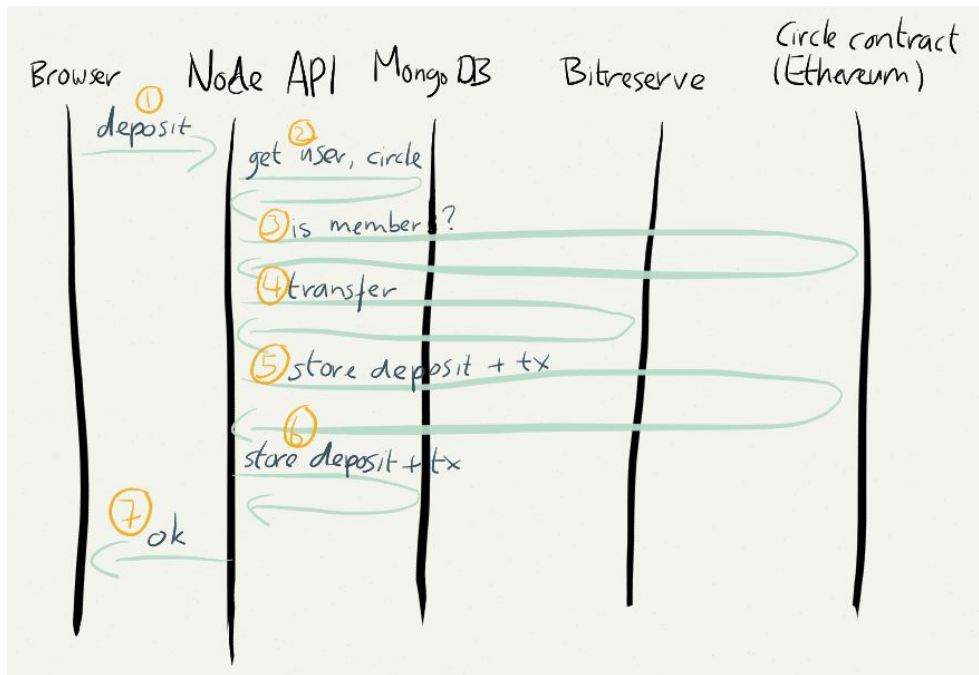 Browser Node API MongoDB Bitreserve Circle contract
(Ethereum)
1
deposit
2
get user, circle
3 is member?
4 transfer
5 store deposit + tx
6
store deposit + tx
7
ok